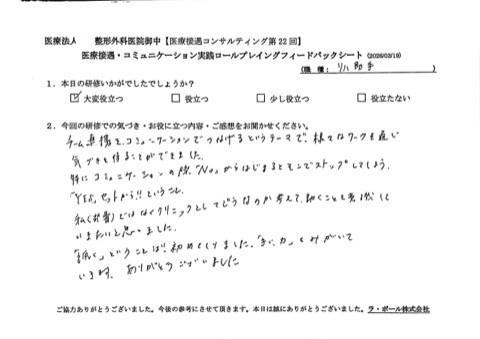 医療法人　整形外科医院御中【医療接遇コンサルティング第22回】
医療接遇・コミュニケーション実践ロールプレイングフィードバックシート（2026/03/19）
（職種：リハ助手）
1．本日の研修いかがでしたでしょうか？
☑大変役立つ　□役立つ　□少し役立つ　□役立たない
2．今回の研修での気づき・お役に立つ内容・ご感想をお聞かせください。
チーム連携を、コミュニケーションでつなげるというテーマで、様々なワークを通し
気づきを得ることができました。
特にコミュニケーションの際「No」からはじまるとそこでストップしてしまう。
「YES」セットから!!ということ。
私(部署)ではなくクリニックとしてどうなのか考えて、動くことを意識して
いきたいと思いました。
「聴く」ということは
いきます。ありがとうございました
ご協力ありがとうございました。今後の参考にさせて頂きます。本日は誠にありがとうございました。ラ・ポール株式会社